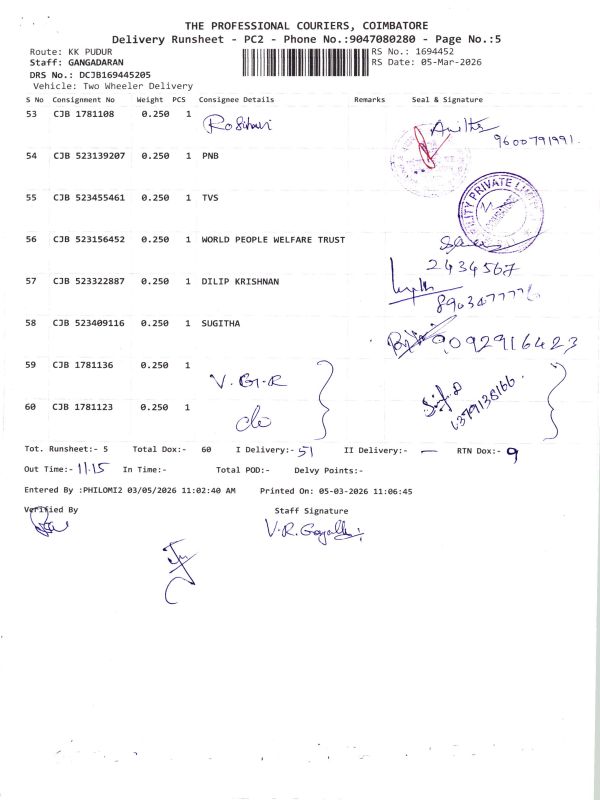 THE PROFESSIONAL COURIERS, COIMBATORE
Delivery Runsheet - PC2 - Phone No.:9047080280 - Page No.:5
Route: KK PUDUR RS No.: 1694452
Staff: GANGADARAN RS Date: 05-Mar-2026
DRS No.: DCJB169445205
Vehicle: Two Wheeler Delivery
S No Consignment No Weight PCS Consignee Details Remarks Seal & Signature
53 CJB 1781108 0.250 1
9600791991.
54 CJB 523139207 0.250 1 PNB
55 CJB 523455461 0.250 1 TVS
PRIVATE
56 CJB 523156452 0.250 1 WORLD PEOPLE WELFARE TRUST
2434567
57 CJB 523322887 0.250 1 DILIP KRISHNAN
58 CJB 523409116 0.250 1 SUGITHA
9092916423
59 CJB 1781136 0.250 1 V.G.R
60 CJB 1781123 0.250 1 do
Tot. Runsheet:- 5 Total Dox:- 60 I Delivery:- 51 II Delivery:- — RTN Dox:- 9
Out Time:- 11.15 In Time:- Total POD:- Delvy Points:-
Entered By :PHILOMI2 03/05/2026 11:02:40 AM Printed On: 05-03-2026 11:06:45
Verified By Staff Signature